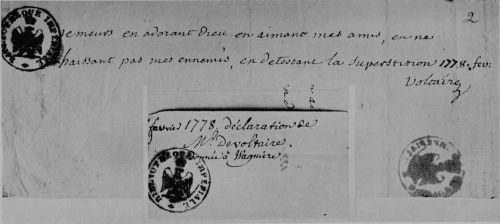 2
je meurs en adorant Dieu en aimant mes amis, en ne
haissant pas mes ennemis, en detestant la superstition 1778. fev.
Voltaire
fevrier 1778. déclaration de
Mr. De voltaire.
donnée à Wagniere
BIBLIOTHEQUE IMPERIALE
BIBLIOTHEQUE IMPERIALE